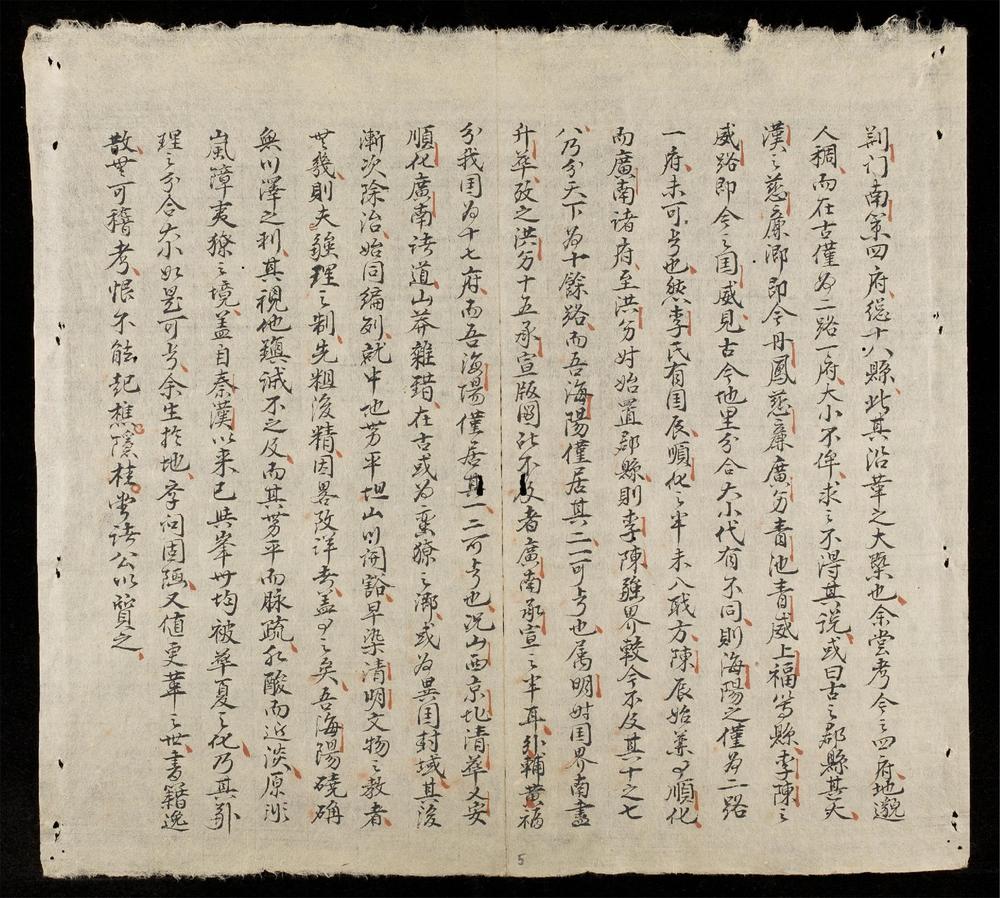 荆门南策四府縂十八縣此其沿革之大槩也余嘗考今之四府地邈
人稠而在古僅為二路一府大小不侔求之不得其説或曰古之郡縣甚大
漢之慈廉鄉即今丹鳳慈廉廣另青池青威上福等縣李陳之
威路即今之国威見古今地里分合大小代有不同則海陽之僅為二路
一府未可歩也然李氏有国辰順化之半未入戝方陳辰始兼順化
而廣南諸府至洪另时始置郡縣則李陳疆界較今不及其十之七
八乃分天下為十餘路而吾海陽僅居其二可歩也属明时国界南盡
升華攷之洪另十五承宣版圖所不及者廣南承宣之半耳外輔黄福
分我国為十七府而吾海陽僅居其一二可歩也况山西京北清華乂安
順化廣南諸道山莽雜錯在古或為蛮獠之鄉或為異国封域其後
漸次除治始同編列就中地势平坦山川開豁早染清明文物之教者
世幾則夫疆理之制先粗後精因畧攷詳矣吾海陽磽确
無川澤之利其視他鎮誠不之及而其势平而脉疏水酸而近淡原非
嵐障夷獠之境盖自秦漢以来已与峯州均被華夏之化乃其
理之分合大小如是可歩余生於地孛问固陋又值更革之世書籍逸
散無可稽考恨不能起樵隐桂堂诸公以質之
5